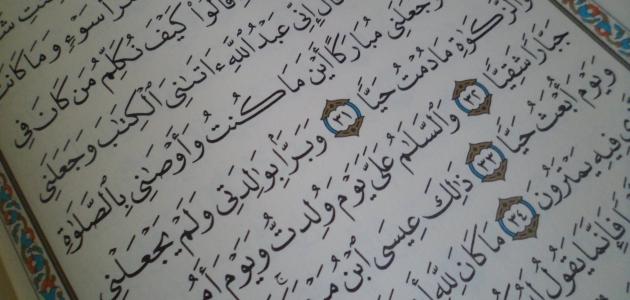 سَوْءٍ وَمَا كَانَتْ
قَالُوا۟ كَيْفَ نُكَلِّمُ مَن كَانَ فِى
إِنِّى عَبْدُ ٱللَّهِ ءَاتَىٰنِىَ ٱلْكِتَٰبَ وَجَعَلَنِى
وَجَعَلَنِى مُبَارَكًا أَيْنَ مَا كُنتُ وَأَوْصَٰنِى بِٱلصَّلَوٰةِ
وَٱلزَّكَوٰةِ مَا دُمْتُ حَيًّا ٣١ وَبَرًّۢا بِوَٰلِدَتِى وَلَمْ يَجْعَلْنِى
جَبَّارًا شَقِيًّا ٣٢ وَٱلسَّلَٰمُ عَلَىَّ يَوْمَ وُلِدتُّ وَيَوْمَ
وَيَوْمَ أُبْعَثُ حَيًّا ٣٣ ذَٰلِكَ عِيسَى ٱبْنُ
فِيهِ يَمْتَرُونَ ٣٤ مَا كَانَ لِلَّهِ
فَإِنَّمَا يَقُولُ